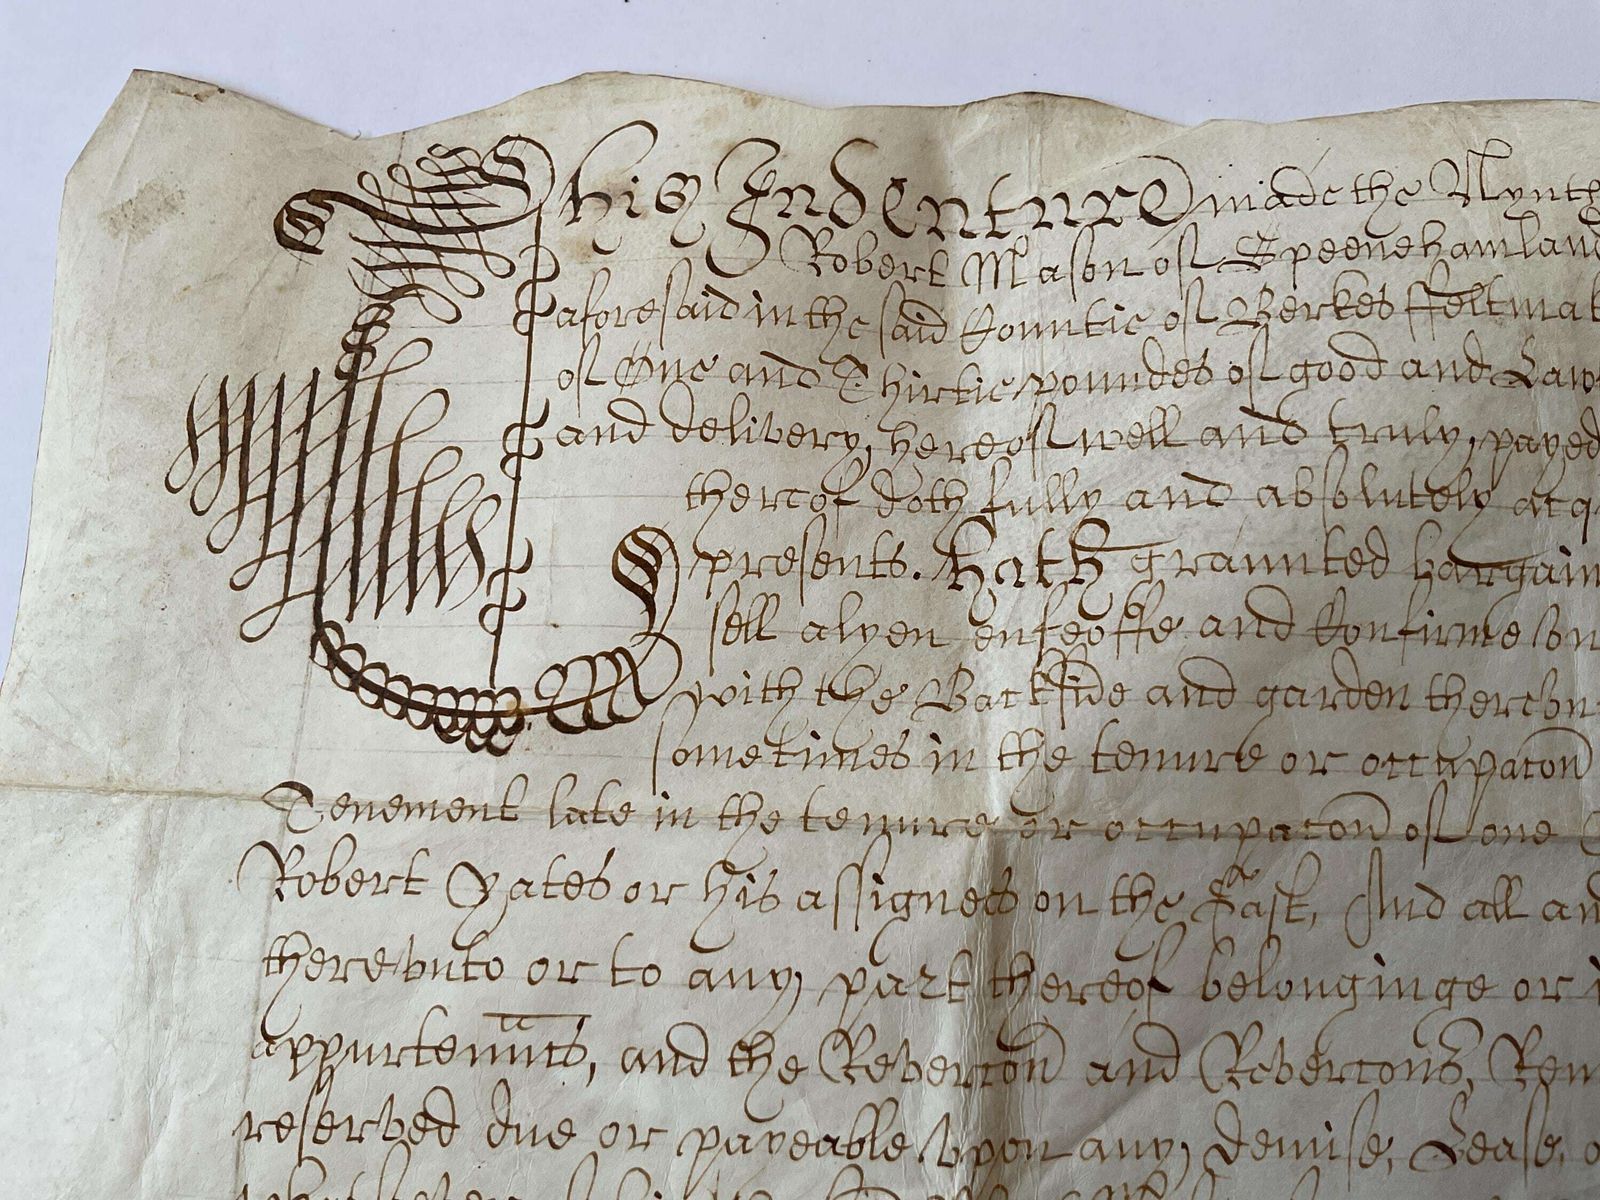 This Indenture made the Nynth
Robert Mason of Speenehamland
aforesaid in the said Countie of Berkes ffeltmak
of One and Thirtie poundes of good and Law
and delivery hereof well and truly payed
thereof doth fully and absolutely acq
presents. Hath graunted bargain
sell alyen enfeoffe and Confirme vn
with the Backside and garden therevn
sometimes in the tenure or occupacon
Tenement late in the tenure or occupacon of one
Robert Yates or his assignes on the East, And all an
therevnto or to any part thereof belonginge or
appurtenncs, and the Revercon and Revercons, Rem
reserved due or payeable vpon any demise, Lease, o